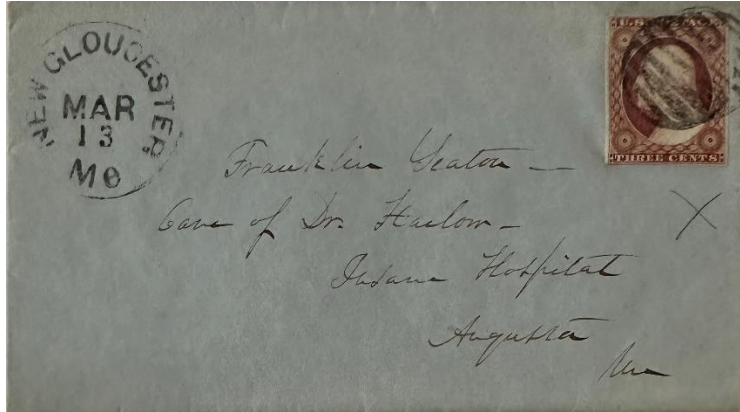 NEW GLOUCESTER
MAR
13
Me
U.S. POSTAGE
THREE CENTS
Franklin Yeaton —
Care of Dr. Harlow —
Insane Hospital
Augusta
Me
X